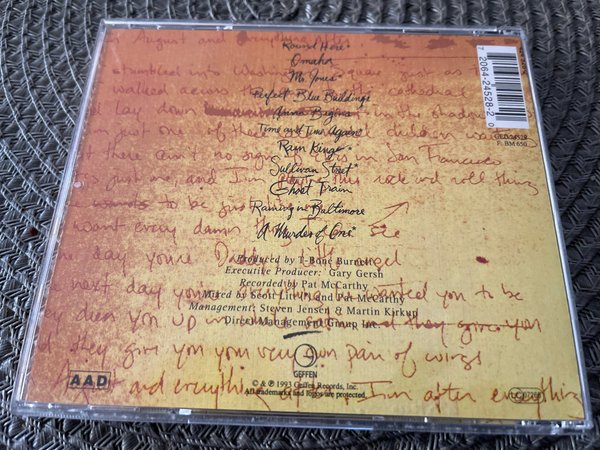 August and everything after
Round Here*
Omaha
stumbled into Washington Square just as
Mr. Jones*
walked across the cathedral
Perfect Blue Buildings
lay down in the shadow
Anna Begins
just one of these children
Time and Time Again*
there ain't no sign of in San Francisco
Rain King*
Sullivan Street*
and I'm this rock and roll thing
Ghost Train
to be just
Raining in Baltimore
want every damn thing
A Murder of One*
day you're Daddy's little angel
Produced by T-Bone Burnett
Executive Producer: Gary Gersh
Recorded by Pat McCarthy
next day you're wanted you to be
Mixed by Scott Litt and Pat McCarthy
Management: Steven Jensen & Martin Kirkup
Direct Management Group Inc.
you up in and they give you
they give you your very own pair of wings
GEFFEN
AAD
© & ℗ 1993 Geffen Records, Inc.
All trademarks and logos are protected.
August and everything I'm after everything
7 20642-4528-2 0
GED 24528
F: BM 650